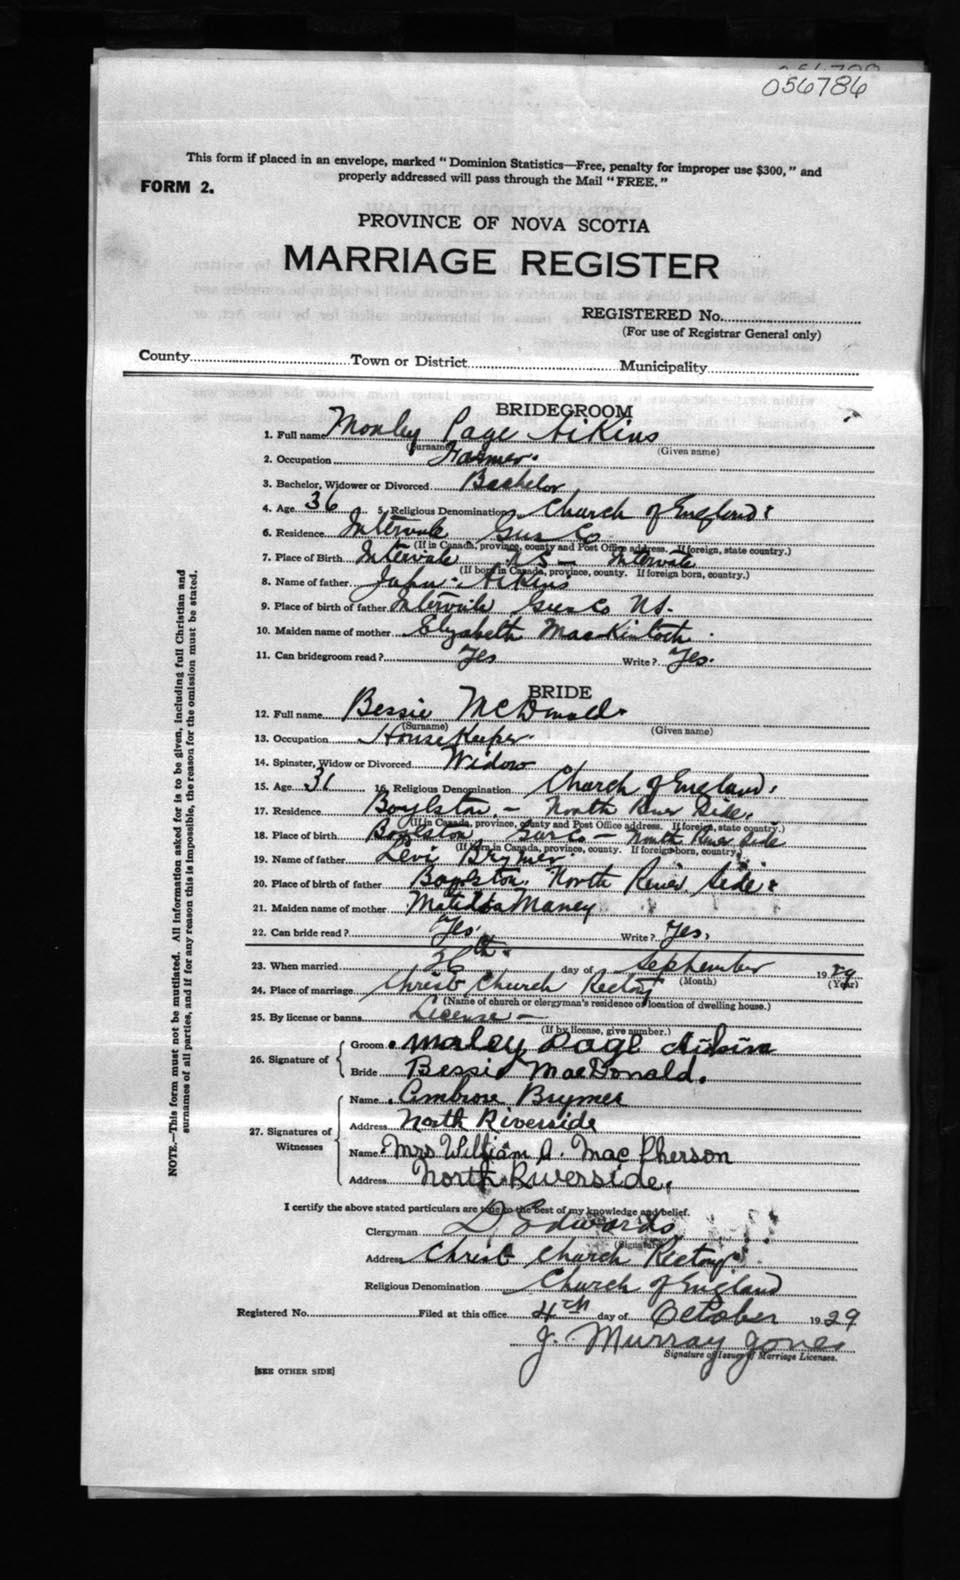 056786
This form if placed in an envelope, marked "Dominion Statistics—Free, penalty for improper use $300," and
properly addressed will pass through the Mail "FREE."
FORM 2.
PROVINCE OF NOVA SCOTIA
MARRIAGE REGISTER
REGISTERED No.
(For use of Registrar General only)
County Town or District Municipality
BRIDEGROOM
1. Full name Morley Page Aikins
(Surname) (Given name)
2. Occupation Farmer.
3. Bachelor, Widower or Divorced Bachelor
4. Age 36 5. Religious Denomination Church of England
6. Residence Intervale Gus Co
(If in Canada, province, county and Post Office address. If foreign, state country.)
7. Place of Birth Intervale NS — Intervale
(If born in Canada, province, county. If foreign born, country.)
8. Name of father John Aikins
9. Place of birth of father Intervale Gus Co NS.
10. Maiden name of mother Elizabeth MacKintosh
11. Can bridegroom read? Yes Write? Yes.
BRIDE
12. Full name Bessie McDonald.
(Surname) (Given name)
13. Occupation House Keeper.
14. Spinster, Widow or Divorced Widow
15. Age 31 16. Religious Denomination Church of England.
17. Residence Boylston — North River Side.
(If in Canada, province, county and Post Office address. If foreign, state country.)
18. Place of birth Boylston Gus Co — North River Side
(If born in Canada, province, county. If foreign born, country.)
19. Name of father Levi Brymer
20. Place of birth of father Boylston, North River Side
21. Maiden name of mother Matilda Maney
22. Can bride read? Yes. Write? Yes.
23. When married 26th. day of September 1929
(Month) (Year)
24. Place of marriage Christ Church Rectory
(Name of church or clergyman's residence or location of dwelling house.)
25. By license or banns License —
(If by license, give number.)
26. Signature of Groom Morley Page Aikins
Bride Bessie MacDonald.
27. Signatures of Witnesses Name Ambrose Brymer
Address North Riverside
Name Mrs William A. MacPherson
Address North Riverside.
I certify the above stated particulars are true to the best of my knowledge and belief.
Clergyman D Edwards
(Signature)
Address Christ Church Rectory
Religious Denomination Church of England
Registered No. Filed at this office 4th day of October 1929
J. Murray Jones
Signature of Issuer of Marriage Licenses.
[SEE OTHER SIDE]
NOTE.—This form must not be mutilated. All information asked for is to be given, including full Christian and
surnames of all parties, and if for any reason this is impossible, the reason for the omission must be stated.